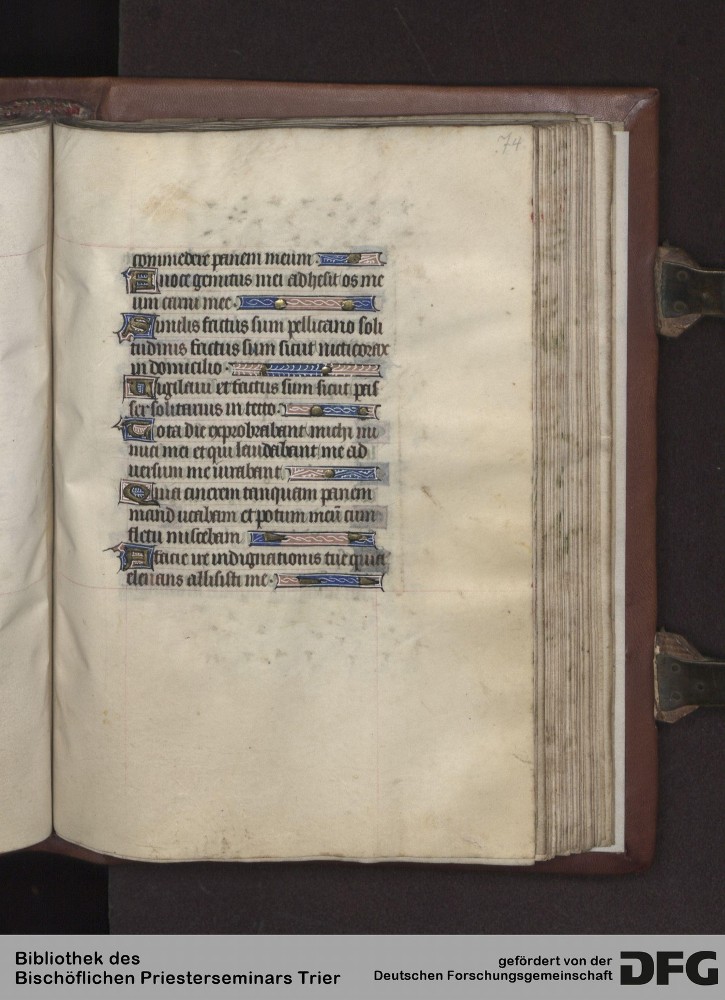 74
commedere panem meum
A uoce gemitus mei adhesit os me
um carni mee
Similis factus sum pellicano soli
tudinis factus sum sicut nicticorax
in domicilio
Uigilaui et factus sum sicut pas
ser solitarius in tecto
Tota die exprobrabant michi ini
mici mei et qui laudabant me ad
uersum me iurabant
Quia cinerem tanquam panem
manducabam et potum meū cum
fletu miscebam
A facie ire indignationis tue quia
eleuans allisisti me
Bibliothek des
Bischöflichen Priesterseminars Trier
gefördert von der
Deutschen Forschungsgemeinschaft
DFG